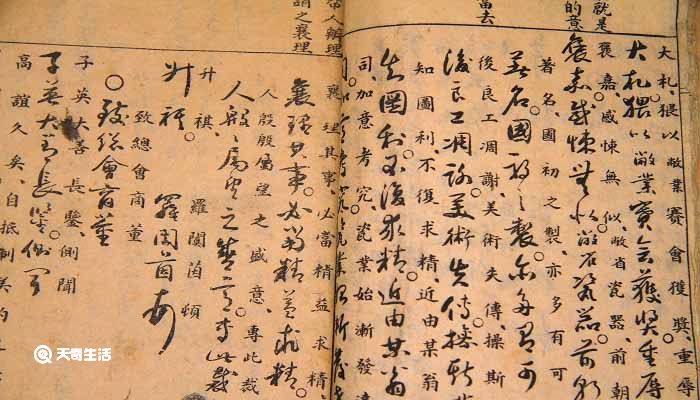 就是
的意
當去
大札。猥以敝業賽會獲獎。重辱
大札。猥以敝業賽會獲獎重辱
褒嘉。感悚無似。敝省瓷器。前朝
褒嘉感悚無似。敝省瓷器。前朝
著名。國初之製。亦多有可
著名。國初之製。亦多有可
後良工凋謝。美術失傳。操斯
後良工凋謝。美術失傳。操斯
知圖利。不復求精。近由某翁
知圖利。不復求精。近由某翁
司。加意考究。瓷業始漸發達
人辦理
謂之襄理
襄理其事。必當精益求精
襄理其事。必當精益求精
人殷殷屬望之盛意。專此裁
人殷殷屬望之盛意。專此裁
升祺。 羅閬茵頓
升祺。 羅閬茵頓
致總會商董
致總會商董
子英大善長鑒。側聞
子英大善長鑒。側聞
高誼久矣。自抵制美約
天奇生活